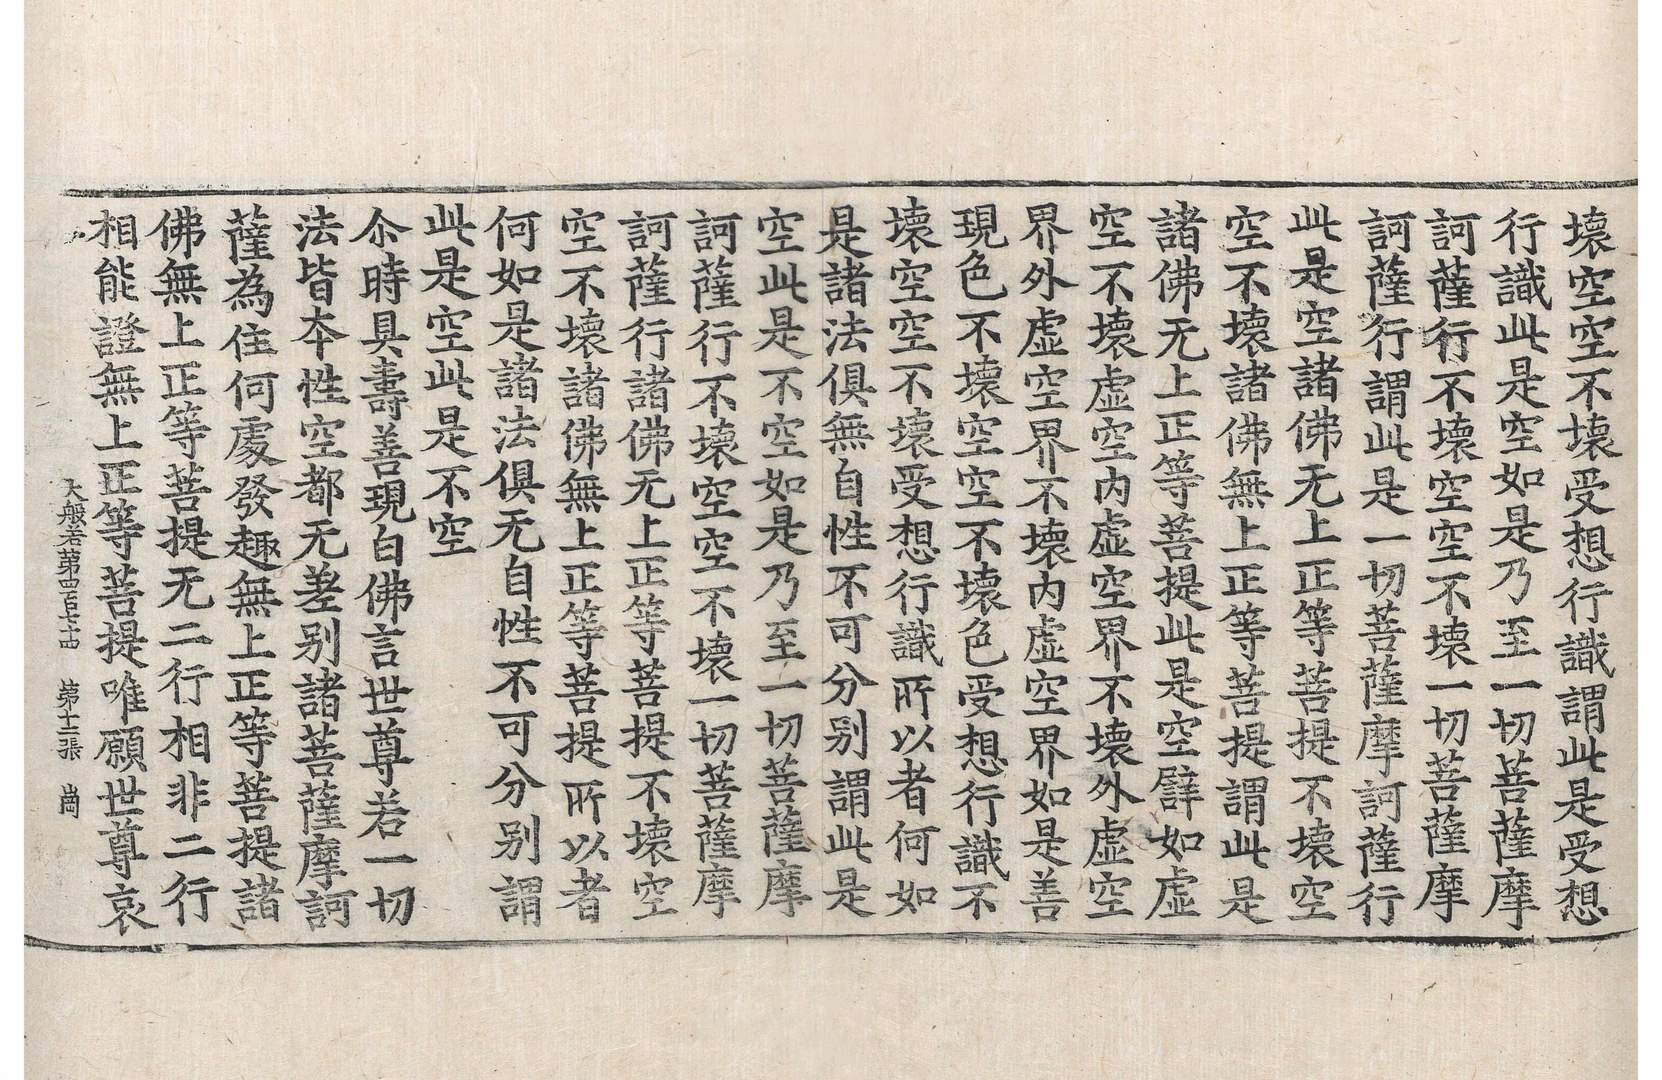 壞空空不壞受想行識謂此是受想
行識此是空如是乃至一切菩薩摩
訶薩行不壞空空不壞一切菩薩摩
訶薩行謂此是一切菩薩摩訶薩行
此是空諸佛无上正等菩提不壞空
空不壞諸佛無上正等菩提謂此是
諸佛无上正等菩提此是空譬如虛
空不壞虛空内虛空界不壞外虛空
界外虛空界不壞内虛空界如是善
現色不壞空空不壞色受想行識不
壞空空不壞受想行識所以者何如
是諸法俱無自性不可分别謂此是
空此是不空如是乃至一切菩薩摩
訶薩行不壞空空不壞一切菩薩摩
訶薩行諸佛无上正等菩提不壞空
空不壞諸佛無上正等菩提所以者
何如是諸法俱无自性不可分别謂
此是空此是不空
尒時具壽善現白佛言世尊若一切
法皆本性空都无差别諸菩薩摩訶
薩為住何處發趣無上正等菩提諸
佛無上正等菩提无二行相非二行
相能證無上正等菩提唯願世尊哀
大般若第四百七十四 第十二張 崗